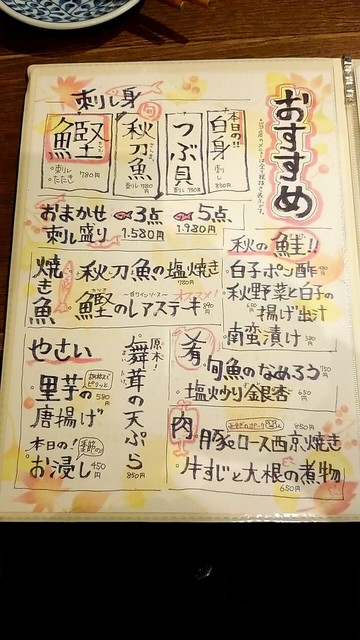 おすすめ
刺し身
本日の!!
白身
刺し 880円
つぶ貝
刺し 780円
旬
秋刀魚
刺し 780円
鰹
・刺し
・たたき 780円
おまかせ
刺し盛り
3点
1.580円
5点
1.980円
秋の鮭!!
・白子ポン酢
・秋野菜と白子の
揚げ出汁
南蛮漬け
焼き魚
・秋刀魚の塩焼き
780円
・鰹のレアステーキ
オススメ!
やさい
・里芋の
唐揚げ
580円
本日の!
季節の
お浸し 450円
原木!
舞茸の天ぷら
850円
肴
・旬魚のなめろう
・塩炒り銀杏
肉
・豚ロース西京焼き
850円
・牛すじと大根の煮物
650円